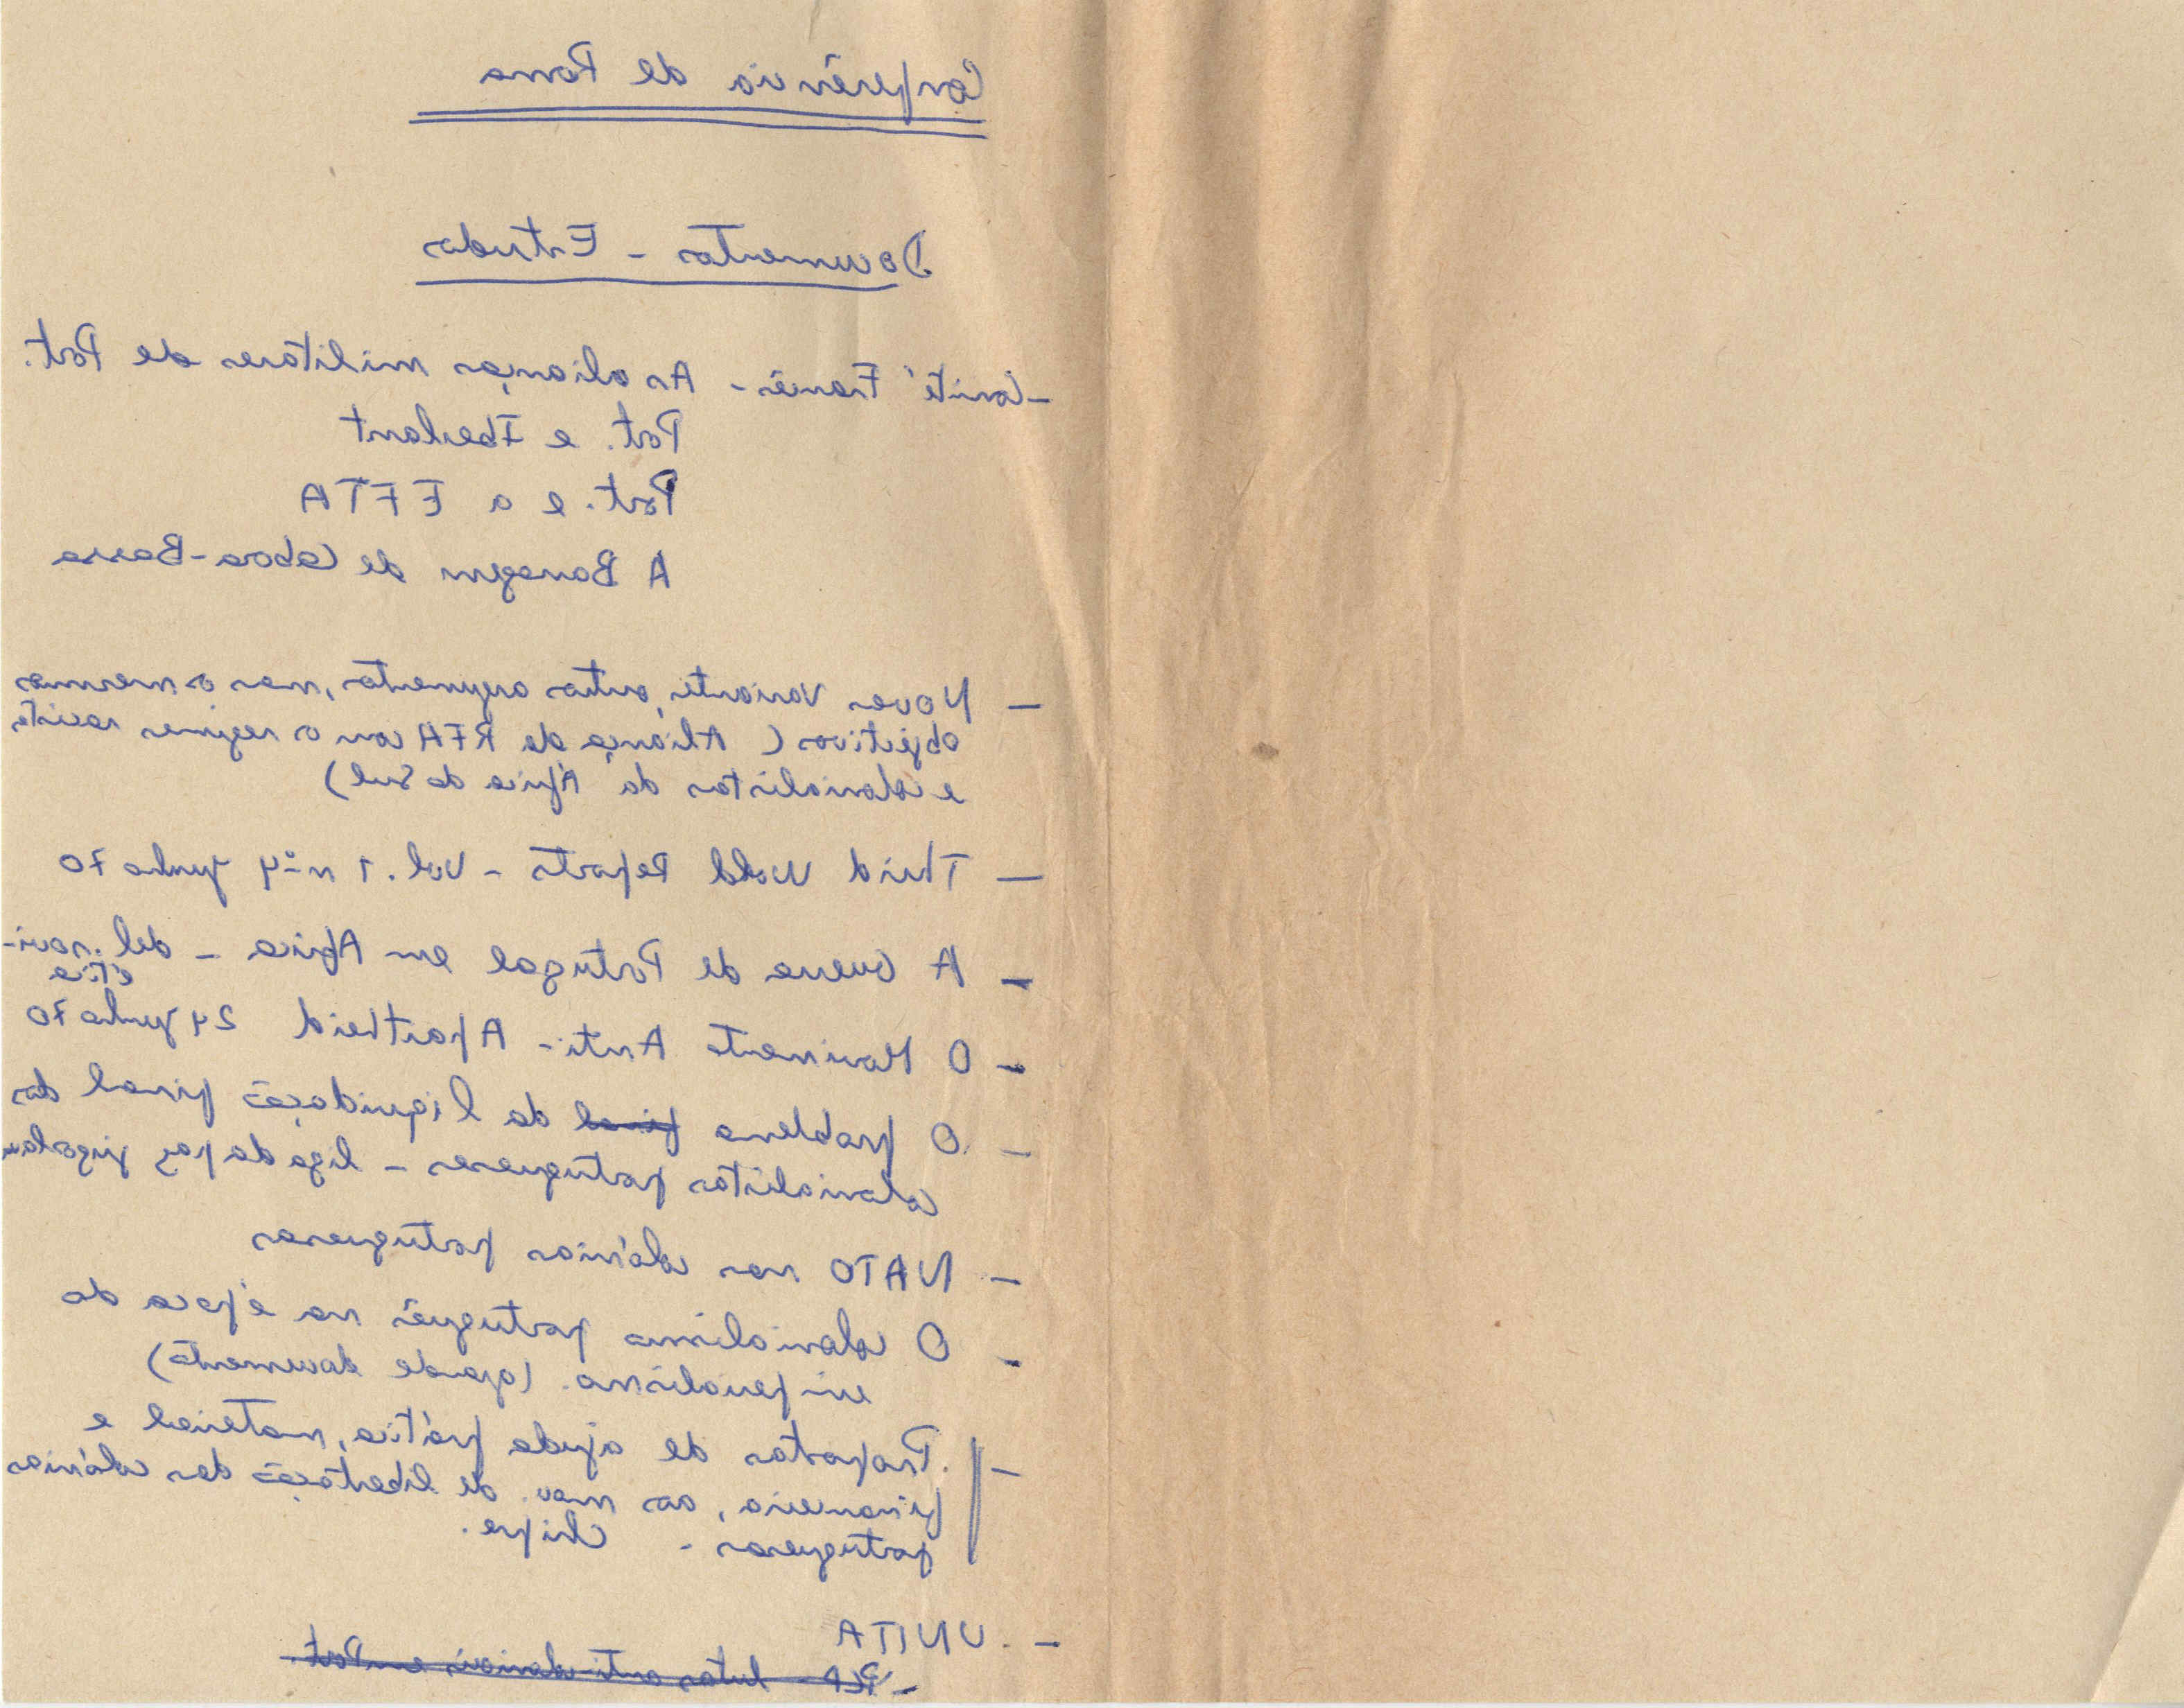 Conferência de Roma
Documentos - Estudos
- Comité Francês - As alianças militares de Port.
Port. e Iberlant
Port. e a EFTA
A Barragem de Cabora-Bassa
- Novas variante, outros argumentos, mas os mesmos
objetivos (Aliança da RFA com os regimes racistas
e colonialistas da África do Sul)
- Third World Reports - Vol. 1 nº 4 junho 70
- A Guerra de Portugal em Africa - del. sovi-
ética
- O Movimento Anti-Apartheid 24 junho 70
- O problema final da liquidação final dos
colonialistas portugueses - liga da paz jugoslava
- NATO nas colónias portuguesas
- O colonialismo português na época do
imperialismo (grande documento)
- Propostas de ajuda prática, material e
financeira, aos mov. de libertação das colónias
portuguesas - Chipre.
- UNITA
- PCP - lutas anti-coloniais em Port.